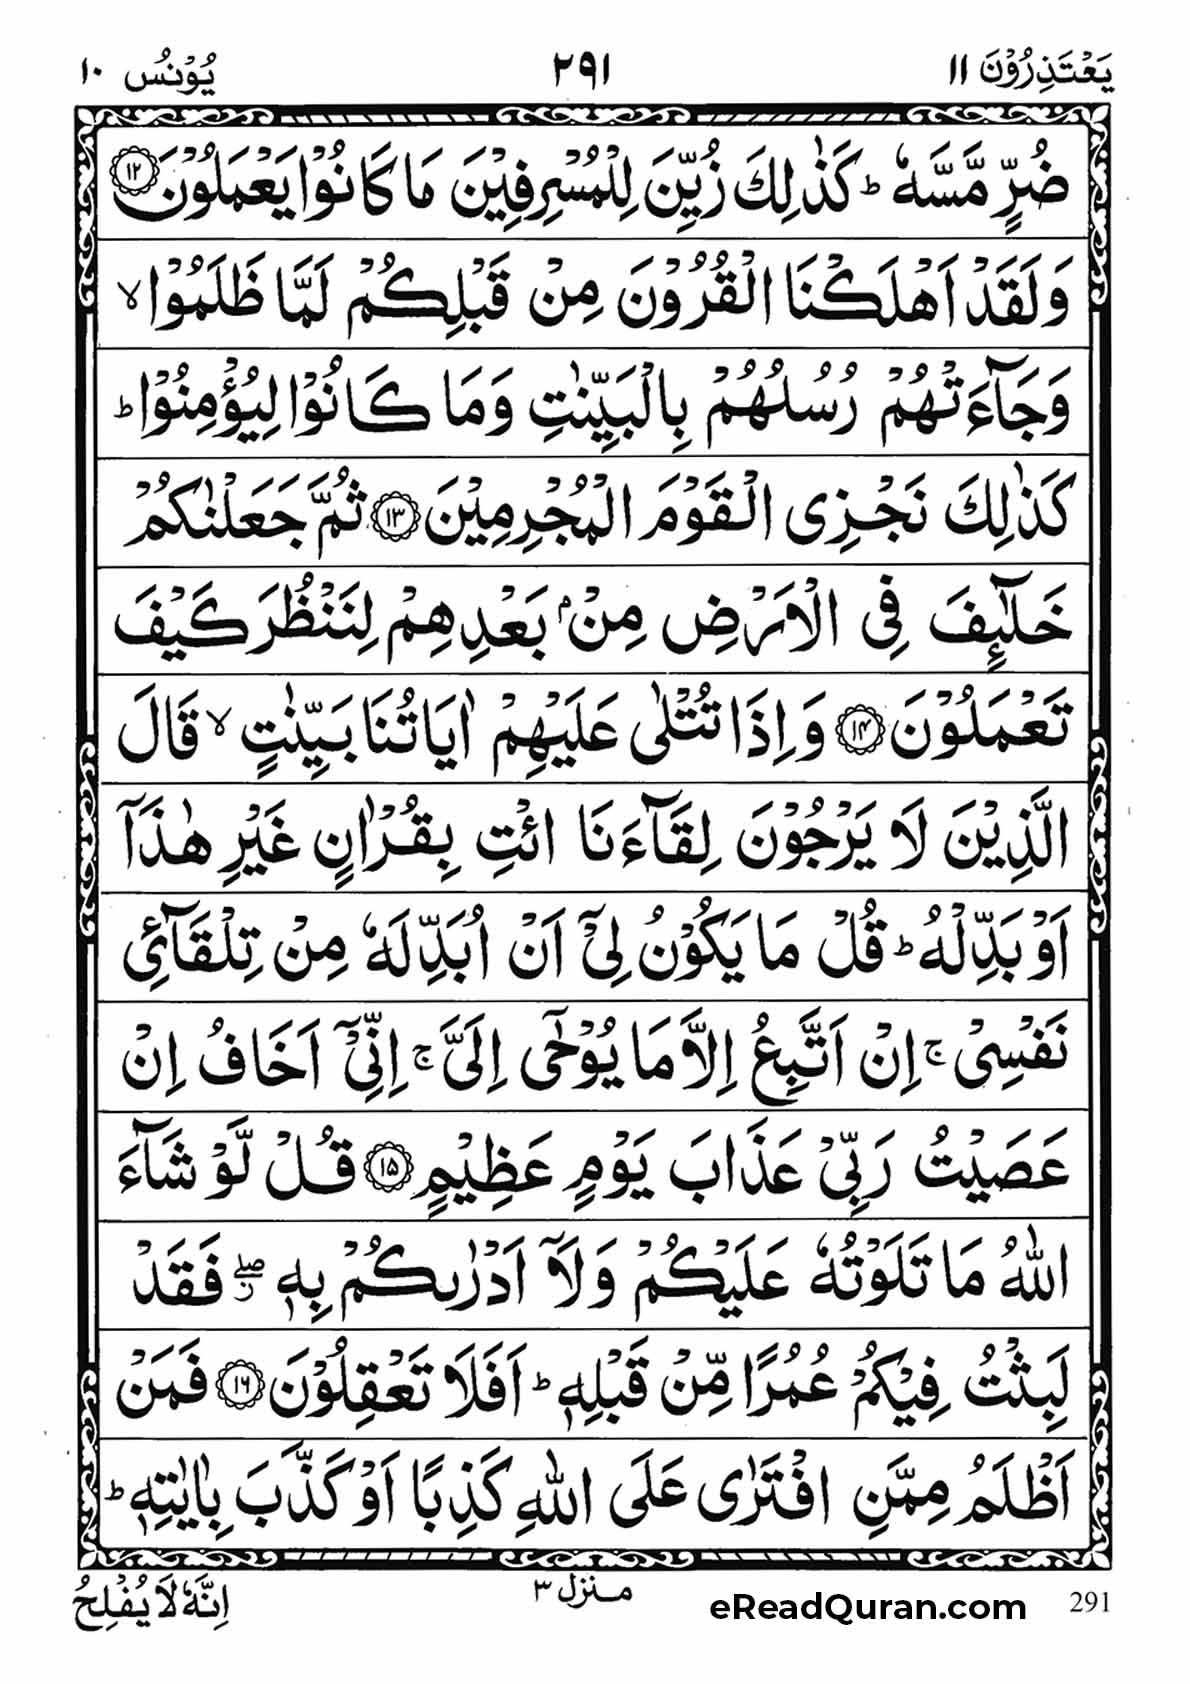 يَعْتَذِرُوْنَ ١١
٢٩١
يُوْنُس ١٠
ضُرٍّ مَّسَّهٗ ؕ كَذٰلِكَ زُيِّنَ لِلْمُسْرِفِيْنَ مَا كَانُوْا يَعْمَلُوْنَ ﴿۱۲﴾
وَلَقَدْ اَهْلَكْنَا الْقُرُوْنَ مِنْ قَبْلِكُمْ لَمَّا ظَلَمُوْا ۙ
وَجَآءَتْهُمْ رُسُلُهُمْ بِالْبَيِّنٰتِ وَمَا كَانُوْا لِيُؤْمِنُوْا ؕ
كَذٰلِكَ نَجْزِى الْقَوْمَ الْمُجْرِمِيْنَ ﴿۱۳﴾ ثُمَّ جَعَلْنٰكُمْ
خَلٰٓئِفَ فِى الْاَرْضِ مِنْۢ بَعْدِهِمْ لِنَنْظُرَ كَيْفَ
تَعْمَلُوْنَ ﴿۱۴﴾ وَاِذَا تُتْلٰى عَلَيْهِمْ اٰيَاتُنَا بَيِّنٰتٍ ۙ قَالَ
الَّذِيْنَ لَا يَرْجُوْنَ لِقَآءَنَا ائْتِ بِقُرْاٰنٍ غَيْرِ هٰذَآ
اَوْ بَدِّلْهُ ؕ قُلْ مَا يَكُوْنُ لِىْٓ اَنْ اُبَدِّلَهٗ مِنْ تِلْقَآئِ
نَفْسِىْ ۚ اِنْ اَتَّبِعُ اِلَّا مَا يُوْحٰٓى اِلَىَّ ۚ اِنِّىْٓ اَخَافُ اِنْ
عَصَيْتُ رَبِّىْ عَذَابَ يَوْمٍ عَظِيْمٍ ﴿۱۵﴾ قُلْ لَّوْ شَآءَ
اللّٰهُ مَا تَلَوْتُهٗ عَلَيْكُمْ وَلَآ اَدْرٰىكُمْ بِهٖ ۖ فَقَدْ
لَبِثْتُ فِيْكُمْ عُمُرًا مِّنْ قَبْلِهٖ ؕ اَفَلَا تَعْقِلُوْنَ ﴿۱۶﴾ فَمَنْ
اَظْلَمُ مِمَّنِ افْتَرٰى عَلَى اللّٰهِ كَذِبًا اَوْ كَذَّبَ بِاٰيٰتِهٖ ؕ
اِنَّهٗ لَا يُفْلِحُ
منزل ٣
eReadQuran.com
291